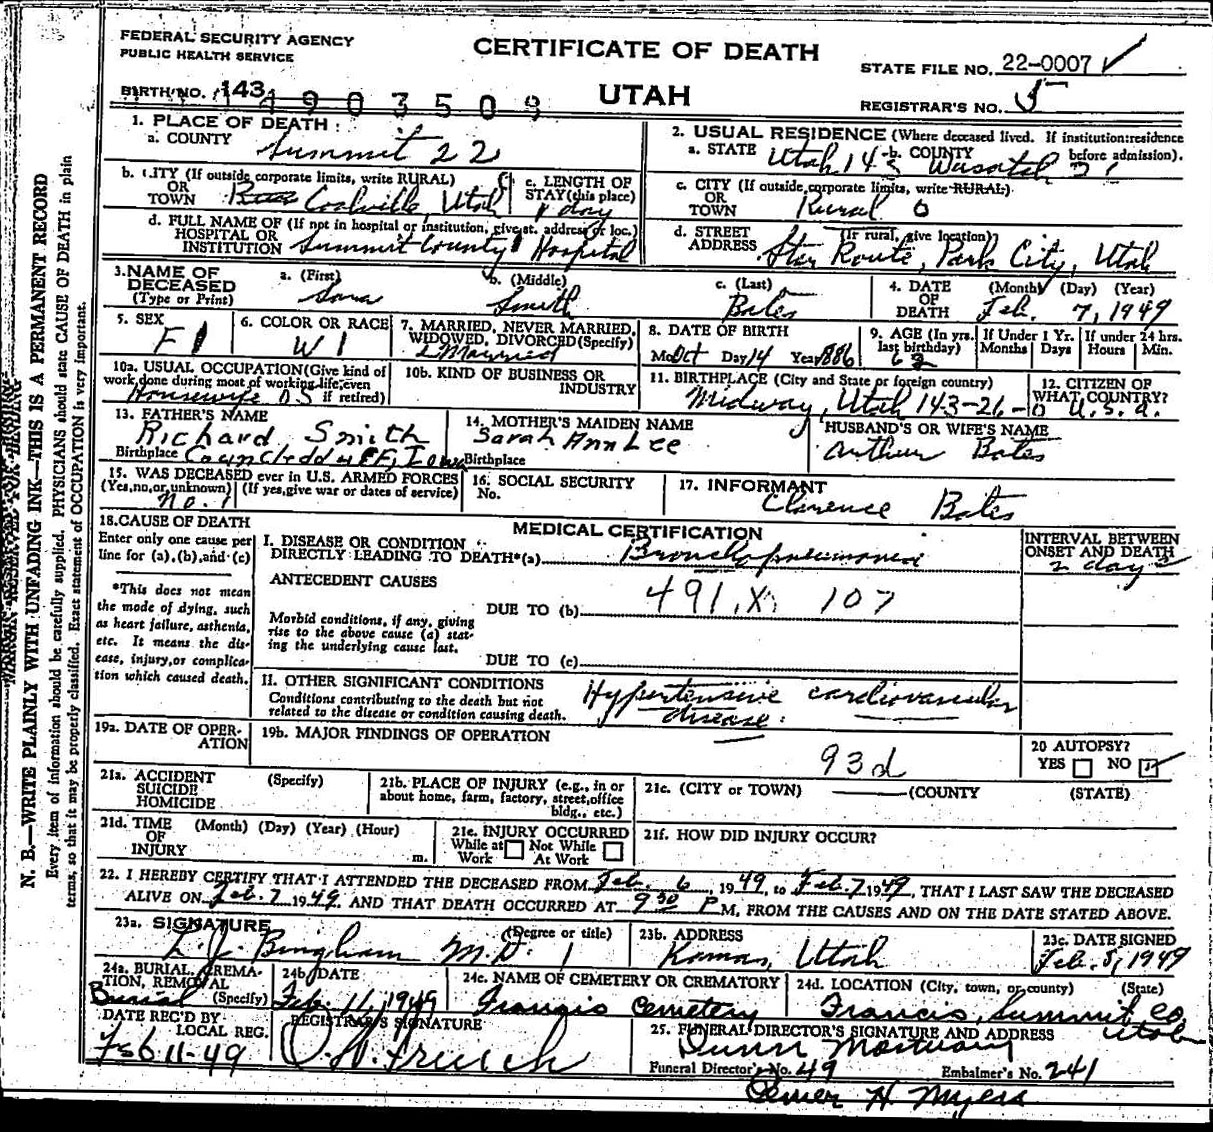 FEDERAL SECURITY AGENCY
PUBLIC HEALTH SERVICE
CERTIFICATE OF DEATH
STATE FILE NO. 22-0007
BIRTH NO. 143
4903509
UTAH
REGISTRAR'S NO. 5
1. PLACE OF DEATH:
a. COUNTY Summit 22
2. USUAL RESIDENCE (Where deceased lived. If institution: residence before admission).
a. STATE Utah 143 b. COUNTY Wasatch
b. CITY (If outside corporate limits, write RURAL) OR TOWN Coalville, Utah
c. LENGTH OF STAY (this place) 1 day
c. CITY (If outside corporate limits, write RURAL) OR TOWN Rural 0
d. FULL NAME OF (If not in hospital or institution, give st. address or loc.) HOSPITAL OR INSTITUTION Summit County Hospital
d. STREET ADDRESS (If rural, give location) Star Route, Park City, Utah
3. NAME OF DECEASED (Type or Print)
a. (First) Sara
b. (Middle) Smith
c. (Last) Bates
4. DATE OF DEATH (Month) (Day) (Year) Feb. 7, 1949
5. SEX F 1
6. COLOR OR RACE W 1
7. MARRIED, NEVER MARRIED, WIDOWED, DIVORCED (Specify) Married
8. DATE OF BIRTH Mo. Oct Day 14 Year 1886
9. AGE (In yrs. last birthday) 62
If Under 1 Yr. Months Days
If under 24 hrs. Hours Min.
10a. USUAL OCCUPATION (Give kind of work done during most of working life, even if retired) Housewife
10b. KIND OF BUSINESS OR INDUSTRY
11. BIRTHPLACE (City and State or foreign country) Midway, Utah 143-26-0
12. CITIZEN OF WHAT COUNTRY? U.S.A.
13. FATHER'S NAME Richard Smith
Birthplace Iowa
14. MOTHER'S MAIDEN NAME Sarah Ann Lee
Birthplace
HUSBAND'S OR WIFE'S NAME Arthur Bates
15. WAS DECEASED ever in U.S. ARMED FORCES (Yes, no, or unknown) (If yes, give war or dates of service) No. 1
16. SOCIAL SECURITY No.
17. INFORMANT Clarence Bates
18. CAUSE OF DEATH
Enter only one cause per line for (a), (b), and (c)
*This does not mean the mode of dying, such as heart failure, asthenia, etc. It means the disease, injury, or complication which caused death.
MEDICAL CERTIFICATION
I. DISEASE OR CONDITION DIRECTLY LEADING TO DEATH*(a) Bronchopneumonia
INTERVAL BETWEEN ONSET AND DEATH 2 days
ANTECEDENT CAUSES
491.X 107
DUE TO (b)
Morbid conditions, if any, giving rise to the above cause (a) stating the underlying cause last.
DUE TO (c)
II. OTHER SIGNIFICANT CONDITIONS
Conditions contributing to the death but not related to the disease or condition causing death.
Hypertensive cardiovascular disease.
19a. DATE OF OPERATION
19b. MAJOR FINDINGS OF OPERATION
93d
20 AUTOPSY? YES NO
21a. ACCIDENT SUICIDE HOMICIDE (Specify)
21b. PLACE OF INJURY (e.g., in or about home, farm, factory, street, office bldg., etc.)
21c. (CITY or TOWN) (COUNTY) (STATE)
21d. TIME OF INJURY (Month) (Day) (Year) (Hour) m.
21e. INJURY OCCURRED While at Work Not While At Work
21f. HOW DID INJURY OCCUR?
22. I HEREBY CERTIFY THAT I ATTENDED THE DECEASED FROM Feb. 6, 1949, to Feb. 7 1949, THAT I LAST SAW THE DECEASED
ALIVE ON Feb. 7 1949, AND THAT DEATH OCCURRED AT 9 30 P M, FROM THE CAUSES AND ON THE DATE STATED ABOVE.
23a. SIGNATURE (Degree or title) L. J. Bingham M.D. 1
23b. ADDRESS Kamas, Utah
23c. DATE SIGNED Feb. 8, 1949
24a. BURIAL, CREMATION, REMOVAL (Specify) Burial
24b. DATE Feb. 11, 1949
24c. NAME OF CEMETERY OR CREMATORY Francis Cemetery
24d. LOCATION (City, town, or county) (State) Francis, Summit Co. Utah
DATE REC'D BY LOCAL REG. Feb 11-49
REGISTRAR'S SIGNATURE
25. FUNERAL DIRECTOR'S SIGNATURE AND ADDRESS
Mortuary
Funeral Director's No. 49 Embalmer's No. 241
Elmer H. Myers
MARGIN RESERVED FOR BINDING
N. B.—WRITE PLAINLY WITH UNFADING INK—THIS IS A PERMANENT RECORD
Every item of information should be carefully supplied. PHYSICIANS should state CAUSE OF DEATH in plain
terms, so that it may be properly classified. Exact statement of OCCUPATION is very important.